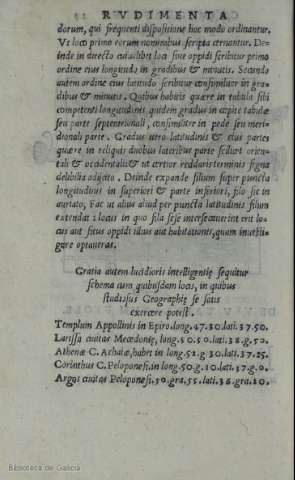 RVDIMENTA
dorum, qui frequenti dispositione hoc modo ordinantur.
Vt loco primo eorum nominabus scripta cernantur. De-
inde in directo cuiuslibet loci siue oppidi scribitur primo
ordine eius longitudo in gradibus & minutis. Secundo
autem ordine eius latitudo scribitur consimiliter in gra-
dibus & minutis. Quibus habitis quære in tabula sibi
competenti longitudinis quidem gradus in capite tabulæ
seu parte septentrionali, consimiliter in pede seu meri-
dionali parte. Gradus vero latitudinis & eius partes
quære in reliquis duobus lateribus parte scilicet orien-
tali & occidentali & vt certior reddaris terminis signa
delibilia adijcito. Deinde expande filum super puncta
longitudinis in superiori & parte inferiori, filo sic in
uariato, Fac vt aliud aliud per puncta latitudinis filum
extendat: locus in quo fila sese intersecauerint erit lo-
cus aut situs oppidi illius aut habitationis, quam inuesti-
gare optaueras.
Gratia autem lucidioris intelligentiæ sequitur
schema cum quibusdam locis, in quibus
studiosus Geographiæ se satis
exercere potest.
Templum Appollinis in Epiro. long. 47. 30. lati. 37. 50.
Larissa ciuitas Mœdoniæ, long. 50. 50. lati. 38. g. 50.
Athenæ C. Achaiæ, habet in long. 52. g 30. lati. 37. 25.
Corinthus C. Peloponesi. in long. 50. g. 10. lati. 37. g. 0.
Argos ciuitas Peloponesi. 50. gra. 55. lati. 36. gra. 20.
Biblioteca de Galicia